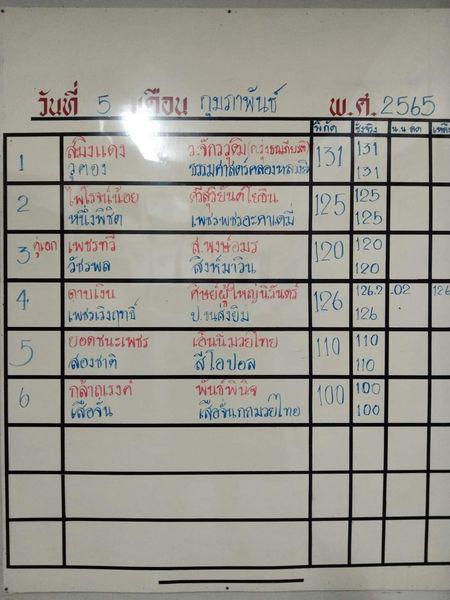 วันที่ 5 เดือน กุมภาพันธ์ พ.ศ. 2565
พิกัด ชั่งจริง น.น.ลด
1 สมิงแดง ว.จักรวุฒิ 131 131
วูตอง ธรรมศาสตร์คลองหลวง 131
2 ไพโรจน์น้อย ศรีสุริยันต์โยธิน 125 125
หนึ่งพิชิต เพชรพชรอะคาเดมี่ 125
3 คู่เอก เพชรทวี ส.พงษ์อมร 120 120
วัชรพล สิงห์มาวิน 120
4 ดาบเงิน ศิษย์ผู้ใหญ่นิรันดร์ 126 126.2 .02 126
เพชรเริงฤทธิ์ ป.ชนสั่งยิม 126
5 ยอดชนะเพชร เอ็นนี่มวยไทย 110 110
สองชาติ สีโอปอล 110
6 กล้าณรงค์ พันธ์พินิจ 100 100
เสือจั่น เสือจั่นกกมวยไทย 100